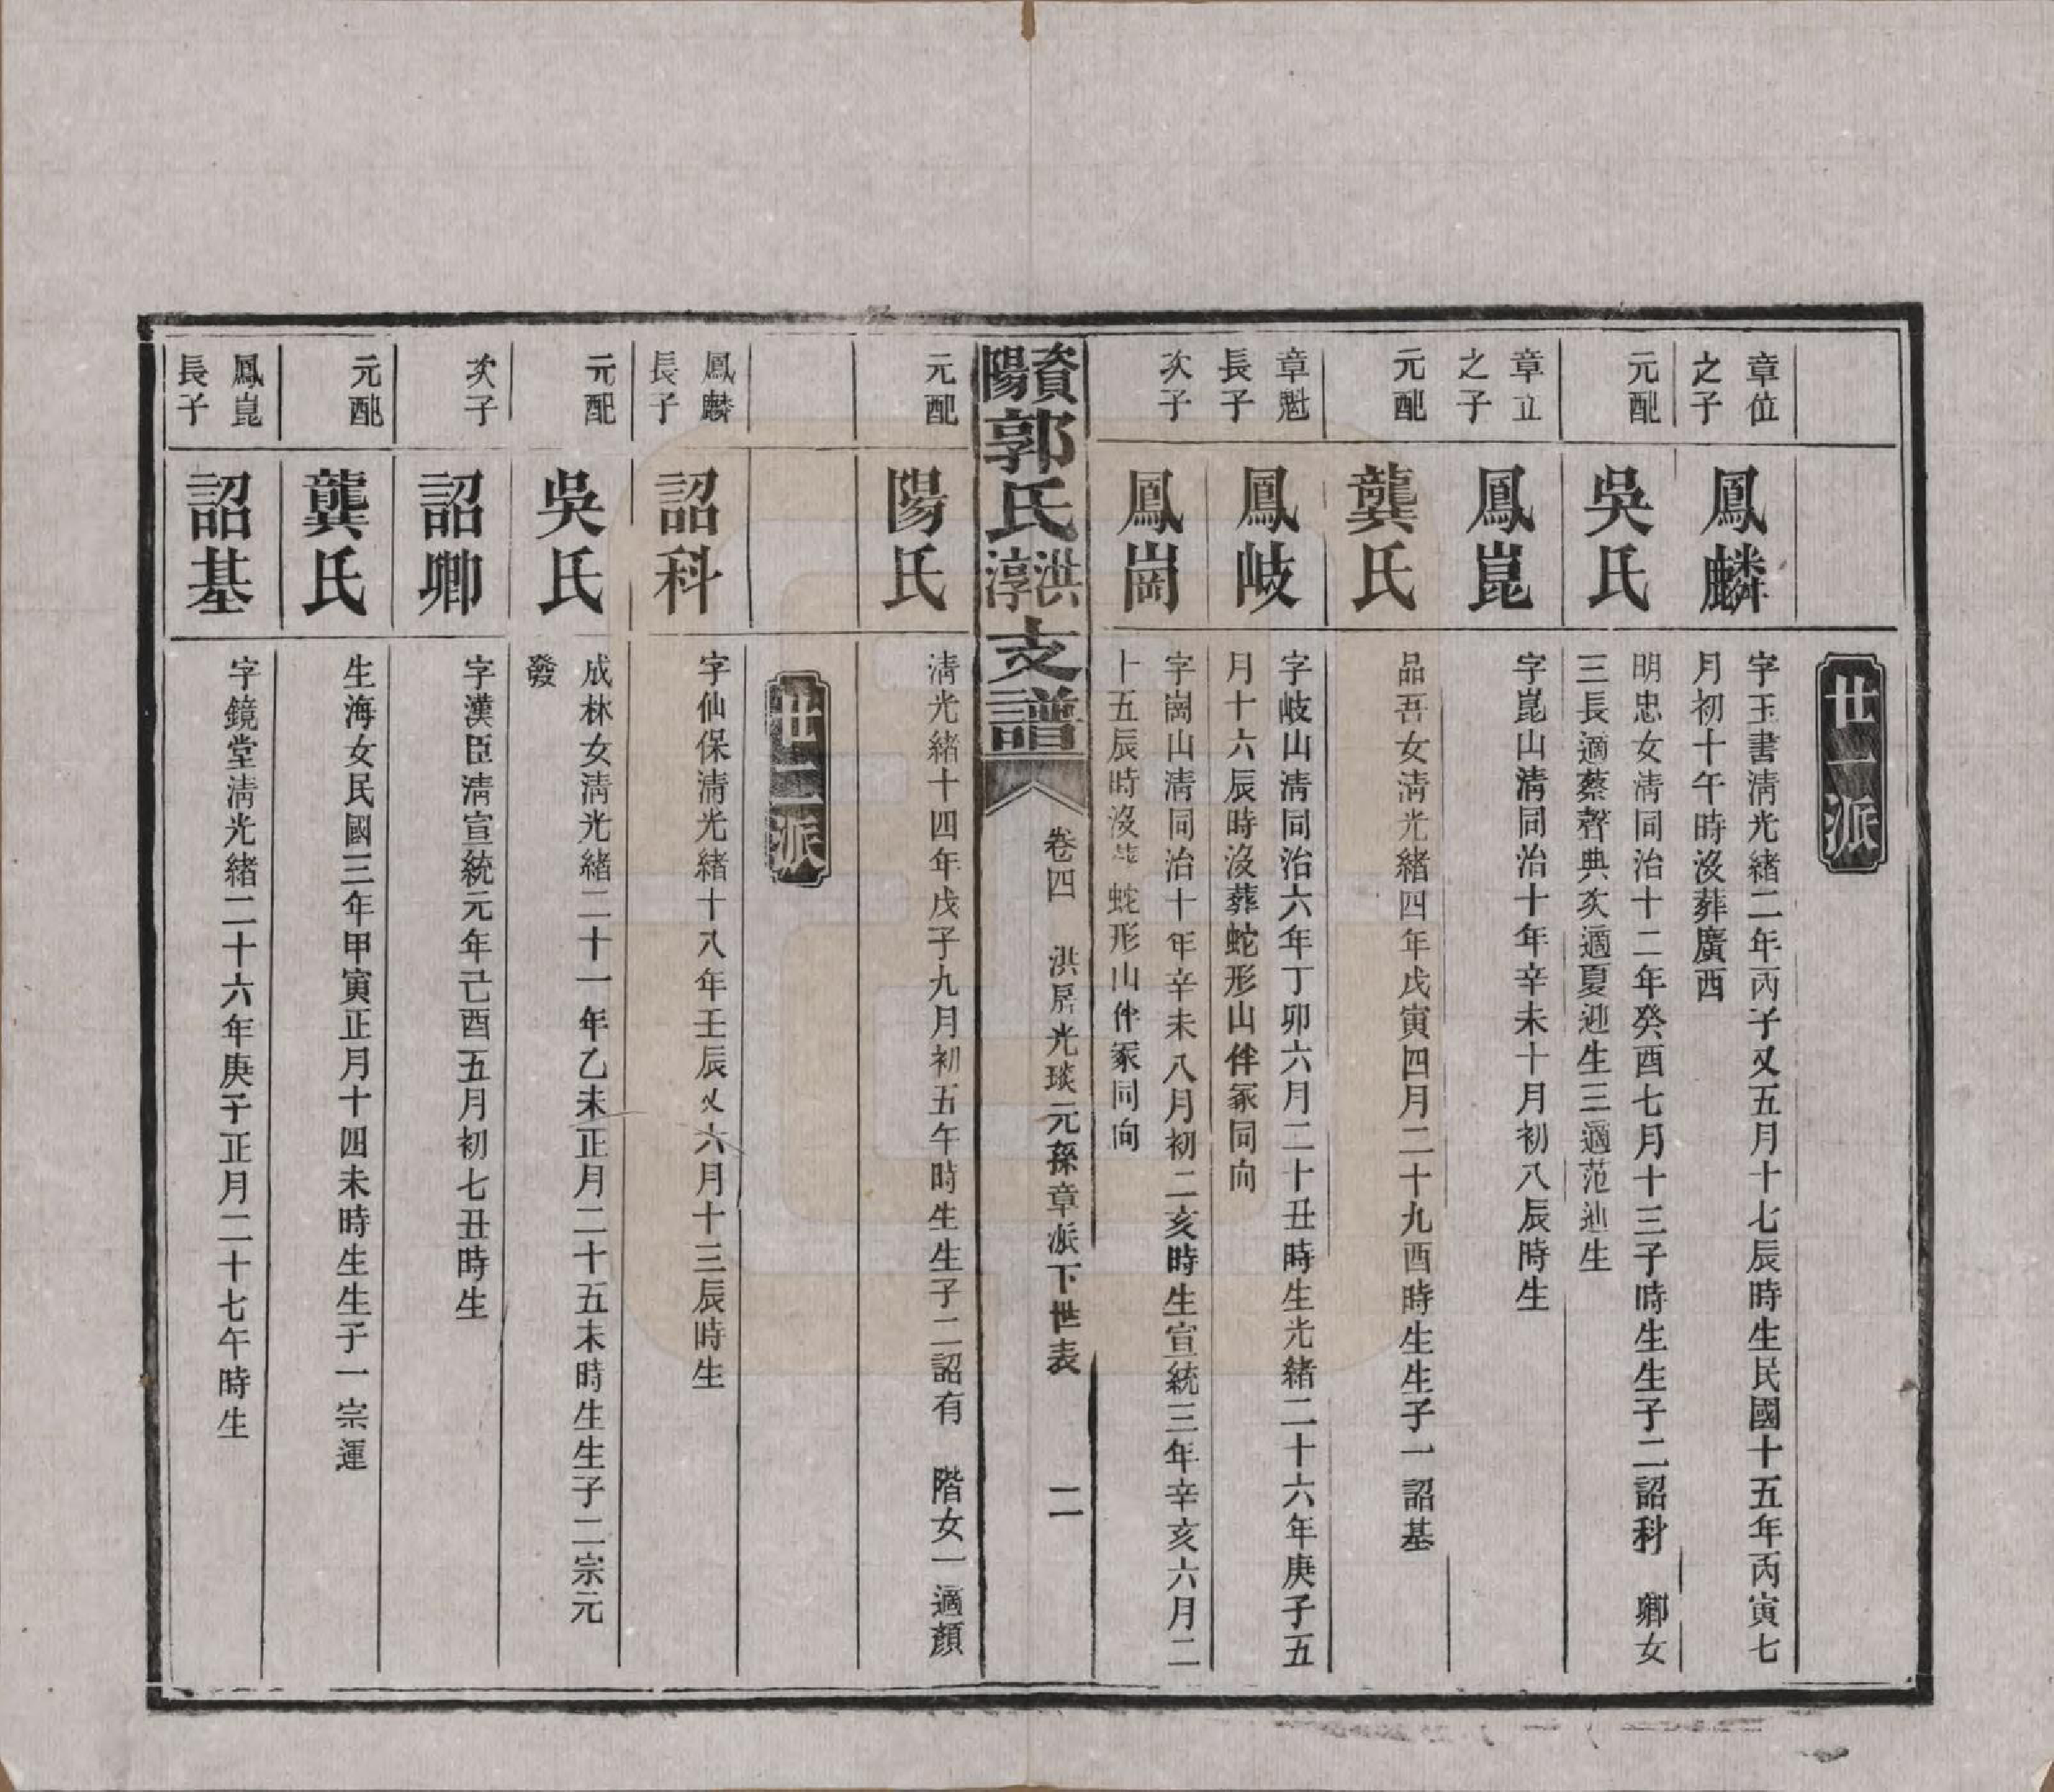 廿一派
章位
之子
鳳麟
字玉書清光緒二年丙子又五月十七辰時生民國十五年丙寅七
月初十午時沒葬廣西
元配
吳氏
明忠女清同治十二年癸酉七月十三子時生生子二詔科 卿女
三長適蔡聲典次適夏迎生三適范迪生
章立
之子
鳳崑
字崑山清同治十年辛未十月初八辰時生
元配
龔氏
品吾女清光緒四年戊寅四月二十九酉時生生子一詔基
章魁
長子
鳳岐
字岐山清同治六年丁卯六月二十丑時生光緒二十六年庚子五
月十六辰時沒葬蛇形山伴冢同向
次子
鳳崗
字崗山清同治十年辛未八月初二亥時生宣統三年辛亥六月二
十五辰時沒葬蛇形山伴冢同向
資陽郭氏洪淳支譜
卷四 洪房光琰元孫章派下世表 二
元配
陽氏
清光緒十四年戊子九月初五午時生生子二詔有 階女一適顏
廿二派
鳳麟
長子
詔科
字仙保清光緒十八年壬辰又六月十三辰時生
元配
吳氏
成林女清光緒二十一年乙未正月二十五未時生生子二宗元
發
次子
詔卿
字漢臣清宣統元年己酉五月初七丑時生
元配
龔氏
生海女民國三年甲寅正月十四未時生生子一宗運
鳳崑
長子
詔基
字鏡堂清光緒二十六年庚子正月二十七午時生